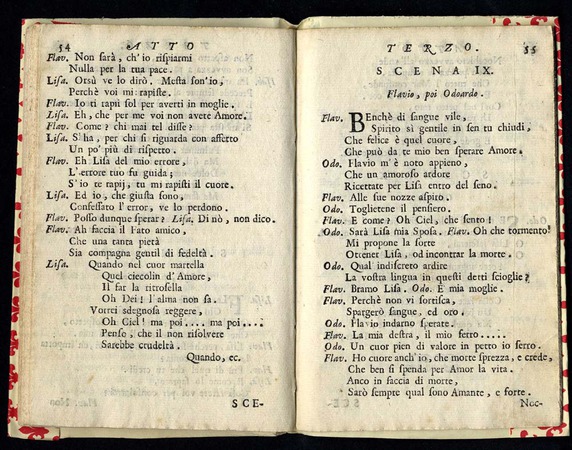 54 ATTO
Flav. Non sarà, ch'io rispiarmi
Nulla per la tua pace.
Lisa. Orsù ve lo dirò. Mesta son'io,
Perchè voi mi rapiste.
Flav. Io ti rapii sol per averti in moglie.
Lisa. Eh, che per me voi non avete Amore.
Flav. Come? chi mai tel disse?
Lisa. S'ha, per chi si riguarda con affetto
Un po' più di rispetto.
Flav. Eh Lisa del mio errore,
L'errore tuo fu guida;
S'io te rapij, tu mi rapisti il cuore.
Lisa. Ed io, che giusta sono,
Confessato l'error, ve lo perdono.
Flav. Posso dunque sperar? Lisa. Di nò, non dico.
Flav. Ah faccia il Fato amico,
Che una tanta pierà
Sia compagna gentil di fedeltà.
Lisa. Quando nel cuor martella
Quel ciecolin d'Amore,
Il far la ritrosella
Oh Dei! l'alma non sa.
Vorrei sdegnosa reggere,
Oh Ciel! ma poi.... ma poi....
Penso, che il non risolvere
Sarebbe crudeltà.
Quando, ec.
SCE-
TERZO. 55
SCENA IX.
Flavio, poi Odoardo.
Flav. Benchè di sangue vile,
Spirito sì gentile in sen tu chiudi,
Che felice è quel cuore,
Che può da te mio ben sperare Amore.
Odo. Flavio m'è noto appieno,
Che un amoroso ardore
Ricettate per Lisa entro del seno.
Flav. Alle sue nozze aspiro.
Odo. Toglietene il pensiero.
Flav. E come? Oh Ciel, che sento!
Odo. Sarà Lisa mia Sposa. Flav. Oh che tormento!
Odo. Mi propone la sorte
Ottener Lisa, od incontrar la morte.
Odo. Qual indiscreto ardire
La vostra lingua in questi detti scioglie?
Flav. Bramo Lisa. Odo. E mia moglie.
Flav. Perchè non vi sortisca,
Spargerò sangue, ed oro.
Odo. Flavio indarno sperate.
Flav. La mia destra, il mio ferro.....
Odo. Un cuor pien di valore in petto io serro.
Flav. Ho cuore anch'io, che morte sprezza, e crede,
Che ben si spenda per Amor la vita.
Anco in faccia di morte,
Sarò sempre qual sono Amante, e forte.
SCE- Noc-